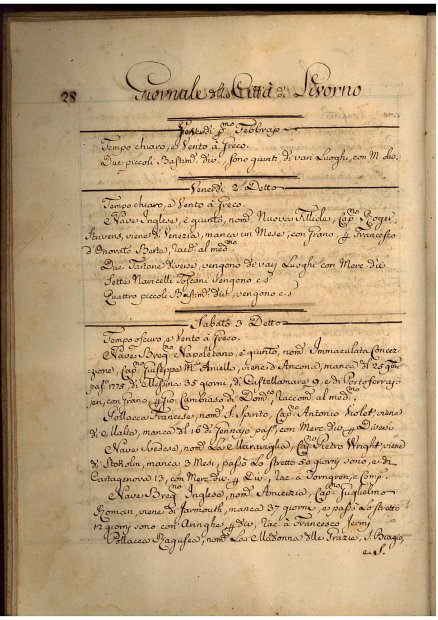 28 Giornale della Città di Livorno
di p.mo Febbrajo
Tempo chiaro, e Vento à Greco.
Due piccoli Bastim. div. sono giunti di varj Luoghi, con M. die.
Venerdi 2 Detto
Tempo chiaro, e Vento à Greco.
Nave Inglese, è giunto, nom. Nuova Cap.no Roger
Stivens, viene di Venezia, manca un Mese, con grano p Francesco
d'Onorato Berte, racd. al med.mo
Due Tartane diverse, vengono di varj Luoghi con Merc. d.ie
Sette Navicelli Toscani vengono c.s
Quattro piccoli Bastim. div. vengono c.s
Sabato 3 Detto
Tempo oscuro, e Vento à Greco.
Nave Breg.no Napoletano, è giunto, nom. Immaculata Concez-
zione, Cap.no Giuseppe M.a Aniello, viene d'Ancona, manca dl 25
pas.o 1775 di Messina 35 giorni, di Castellamare 9, e di Portoferraj-
con grano p Gio Cambiaso di Dom.co raccom. al med.mo
Pollacca Francese, nom. S. Spirito, Cap.no Antonio Violet, viene
di Malta, manca dl 16 di Gennajo pas.o, con Merc. die p Diversi
Nave Svedese, nom. La Maraviglia, Cap.no Pietro Wright, viene
di Stokolm, manca 3 Mesi, passò lo stretto 50 giorni sono, e di
Cartagenova 13, con Merc. die p Div., rac. a Torngren, e Comp.
Nave Breg.no Inglese, nom. America, Cap.no Guglielmo
Roman, viene di Farmouth, manca 37 giorni, e passò lo stretto
12 giorni sono con Aringhe p div., rac. à Francesco Jermy
Pollacca Ragusea, nom. La Madonna delle Grazie, S. Biagio,
e S.